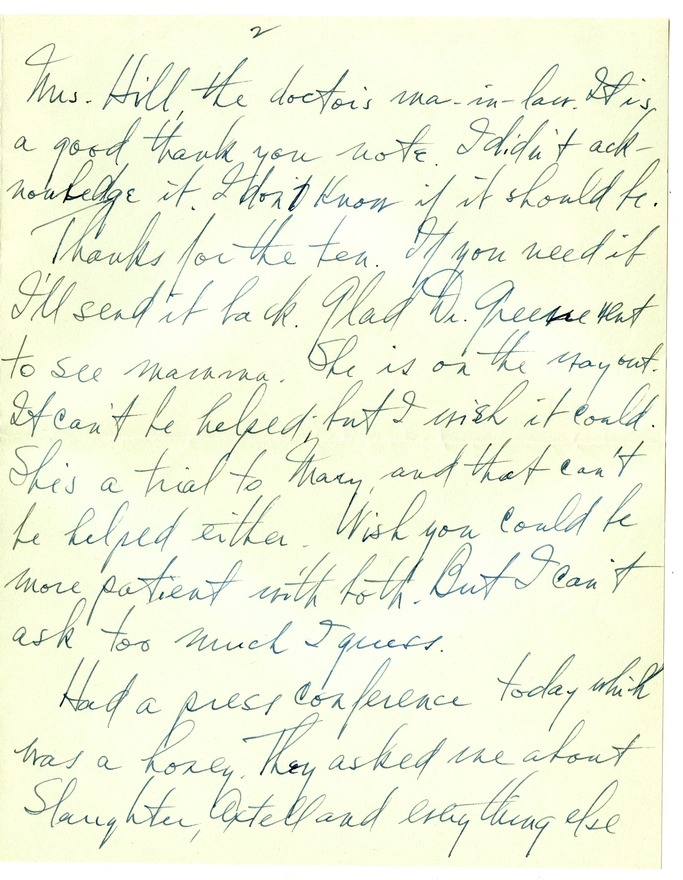 2
Mrs. Hill, the doctor's ma-in-law. It is,
a good thank you note. I didn't ack-
nowledge it. I don't know if it should be.
Thanks for the ten. If you need it
I'll send it back. Glad Dr. Greene went
to see mamma. She is on the way out.
It can't be helped; but I wish it could.
She's a trial to Mary, and that can't
be helped either. Wish you could be
more patient with both. But I can't
ask too much I guess.
Had a press conference today which
was a honey. They asked me about
Slaughter, Axtell and everything else